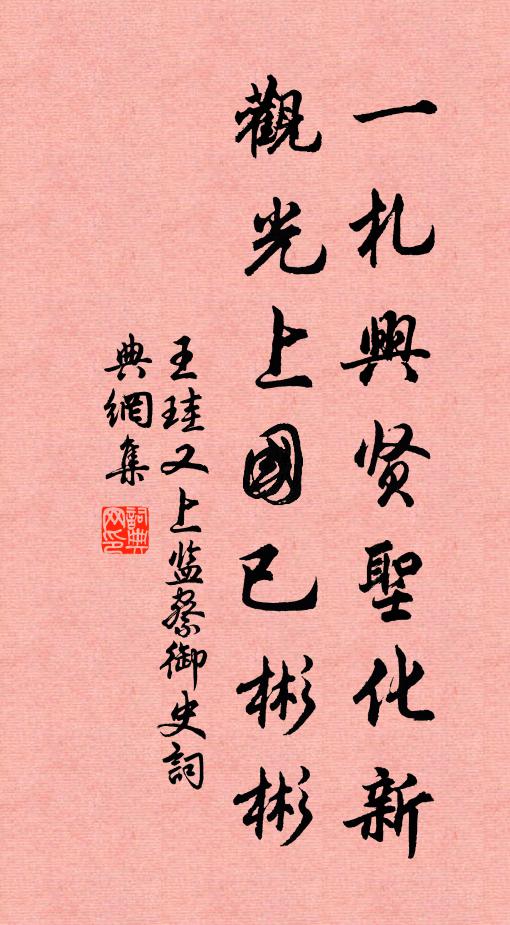 一札興贤聖化新
觀光上國已彬彬
王珪又上监察御史詞
典網集
詞典
网印